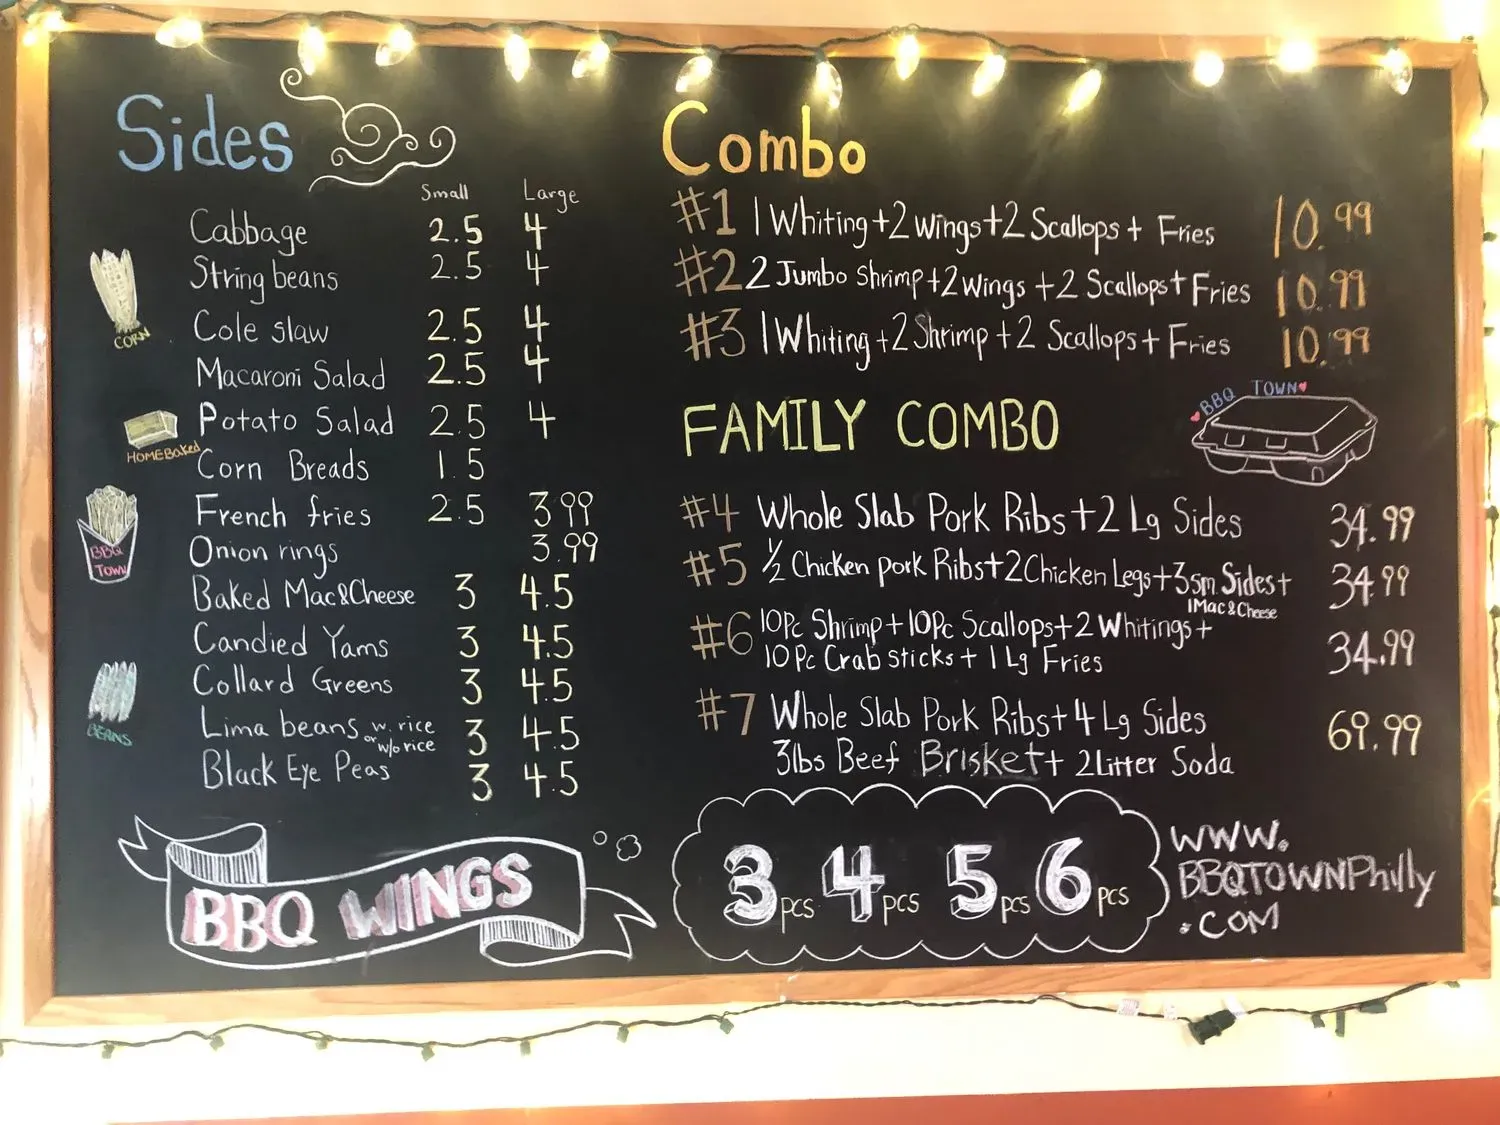 Sides
Small Large
Cabbage 2.5 4
String beans 2.5 4
Cole slaw 2.5 4
Macaroni Salad 2.5 4
Potato Salad 2.5 4
Corn Breads 1.5
French fries 2.5 3.99
Onion rings 3.99
Baked Mac&Cheese 3 4.5
Candied Yams 3 4.5
Collard Greens 3 4.5
Lima beans w. rice or w/o rice 3 4.5
Black Eye Peas 3 4.5
CORN
HOMEBaked
BBQ
TOWN
BEANS
BBQ WINGS
Combo
#1 1 Whiting+2 Wings+2 Scallops + Fries 10.99
#2 2 Jumbo Shrimp+2 Wings +2 Scallops+ Fries 10.99
#3 1 Whiting+2 Shrimp + 2 Scallops+ Fries 10.99
BBQ TOWN
FAMILY COMBO
#4 Whole Slab Pork Ribs+2 Lg Sides 34.99
#5 1/2 Chicken pork Ribs+2 Chicken Legs+3 sm Sides+ 34.99
1 Mac&Cheese
#6 10Pc Shrimp+10Pc Scallops+2 Whitings+ 34.99
10 Pc Crab sticks + 1 Lg Fries
#7 Whole Slab Pork Ribs+4 Lg Sides 69.99
3lbs Beef Brisket+ 2Litter Soda
3 pcs 4 pcs 5 pcs 6 pcs
WWW.
BBQTOWNPhilly
.COM